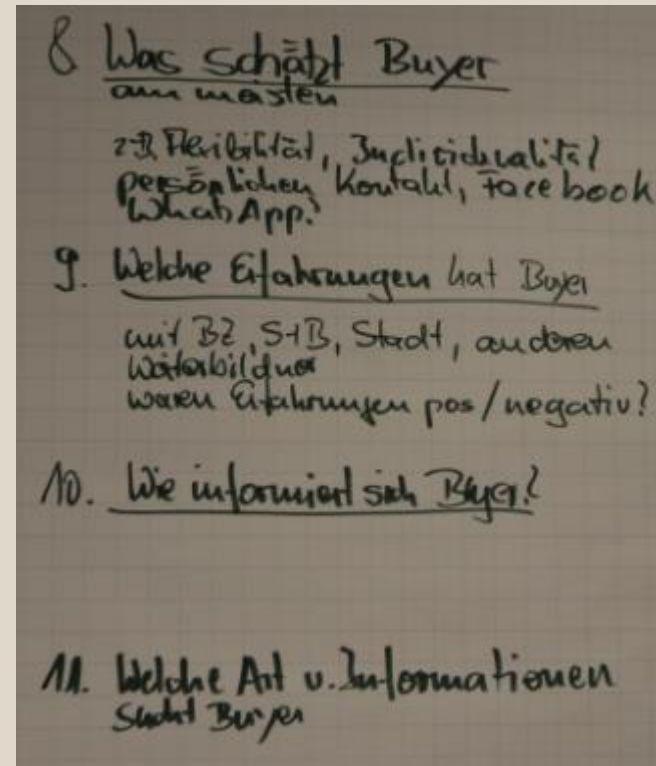 8 Was schätzt Buyer
am meisten
z.B. Flexibilität, Individualität
persönlichen Kontakt, facebook
WhatsApp?
9. Welche Erfahrungen hat Buyer
mit BZ, StB, Stadt, anderen
Weiterbildner
waren Erfahrungen pos/negativ?
10. Wie informiert sich Buyer?
11. Welche Art v. Informationen
sucht Buyer